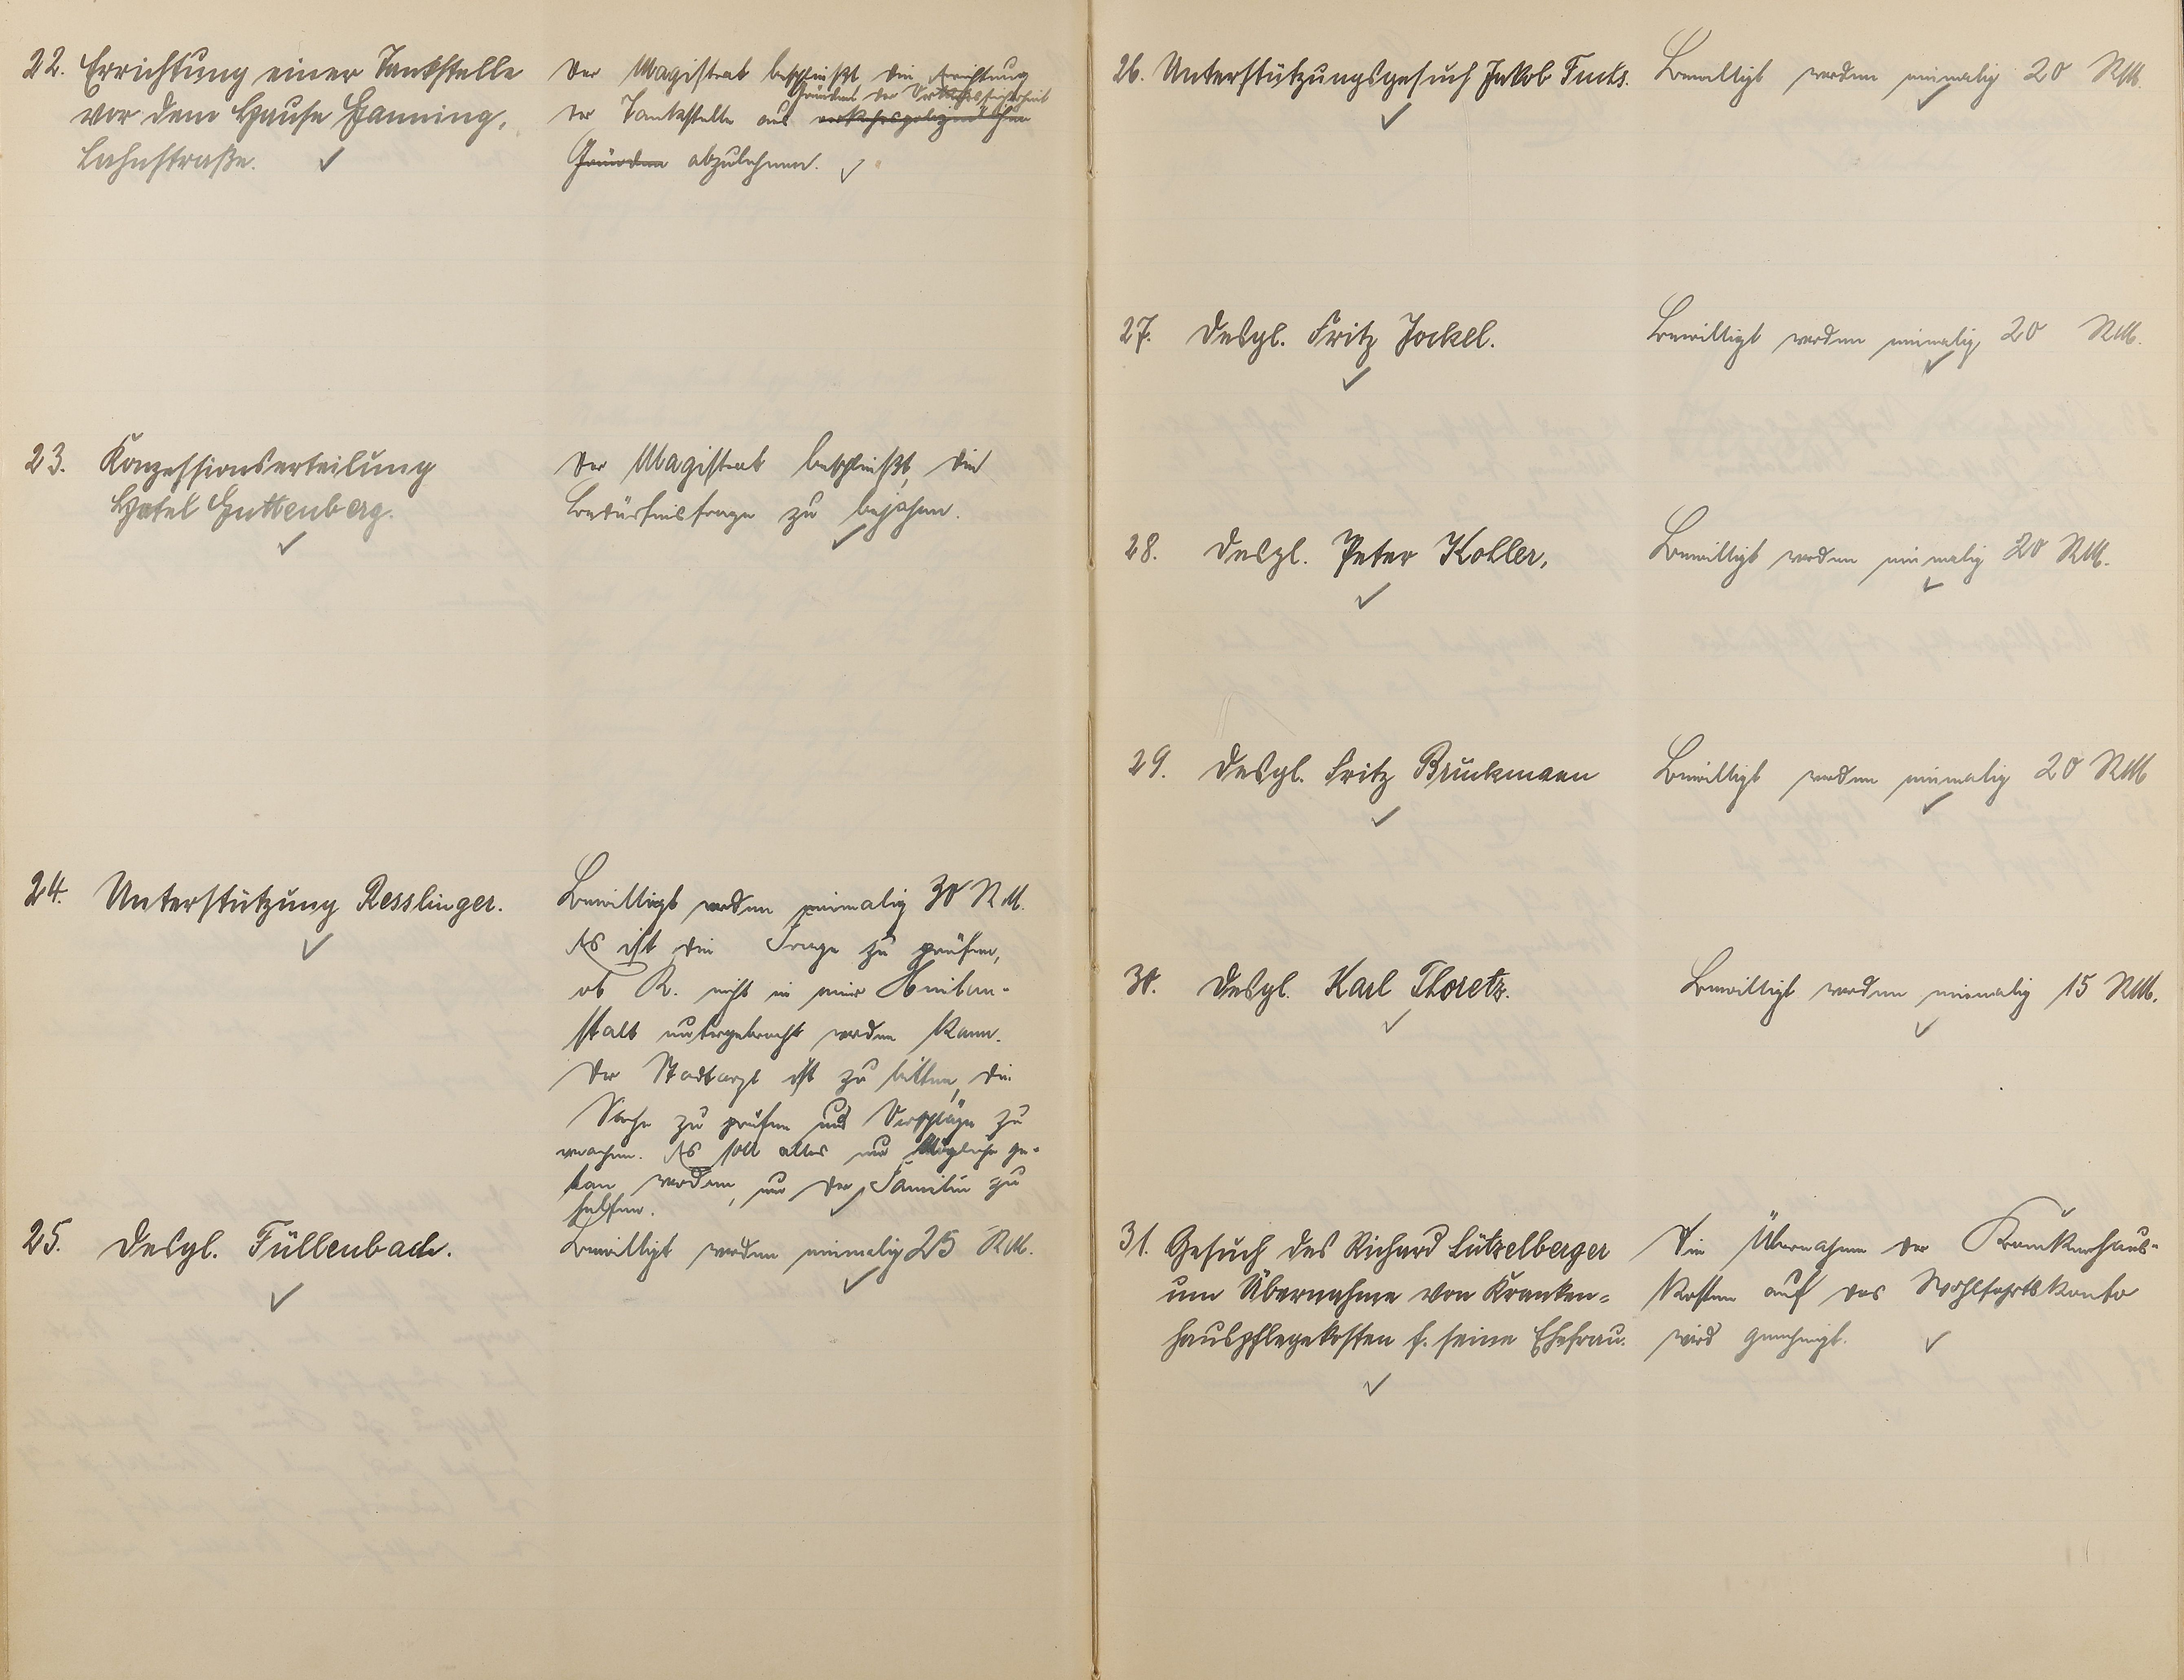 22. Errichtung einer Tankstelle
vor dem Hause Hanning,
Lahnstraße. ✓
Der Magistrat beschließt die Errichtung
Gründen der Verkehrssicherheit
der Tankstelle aus verkehrspolizeilichen
Gründen abzulehnen. ✓
23. Konzessionserteilung
Hotel Guttenberg.
✓
Der Magistrat beschließt, die
Bedürfnisfrage zu bejahen.
✓
24. Unterstützung Resslinger.
✓
Bewilligt werden einmalig 30 RM.
Es ist die Frage zu prüfen,
ob R. nicht in einer Heilan-
stalt untergebracht werden kann.
Der Stadtarzt ist zu bitten, die
Sache zu prüfen und Vorschläge zu
machen. Es soll alles nur Mögliche ge-
tan werden, um der Familie zu
helfen. ✓
25. Desgl. Füllenbach.
✓
Bewilligt werden einmalig 25 RM.
✓
26. Unterstützungsgesuch Jakob Fuchs.
✓
Bewilligt werden einmalig 20 RM.
✓
27. Desgl. Fritz Jockel.
✓
Bewilligt werden einmalig 20 RM.
✓
28. Desgl. Peter Kohler,
✓
Bewilligt werden einmalig 20 RM.
✓
29. Desgl. Fritz Brückmann
✓
Bewilligt werden einmalig 20 RM
✓
30. Desgl. Karl Thoretz.
✓
Bewilligt werden einmalig 15 RM.
✓
31. Gesuch des Richard Lützelberger
um Übernahme von Kranken-
hauspflegekosten f. seine Ehefrau.
✓
Die Übernahme der Krankenhaus-
kosten auf das Wohlfahrtskonto
wird genehmigt. ✓